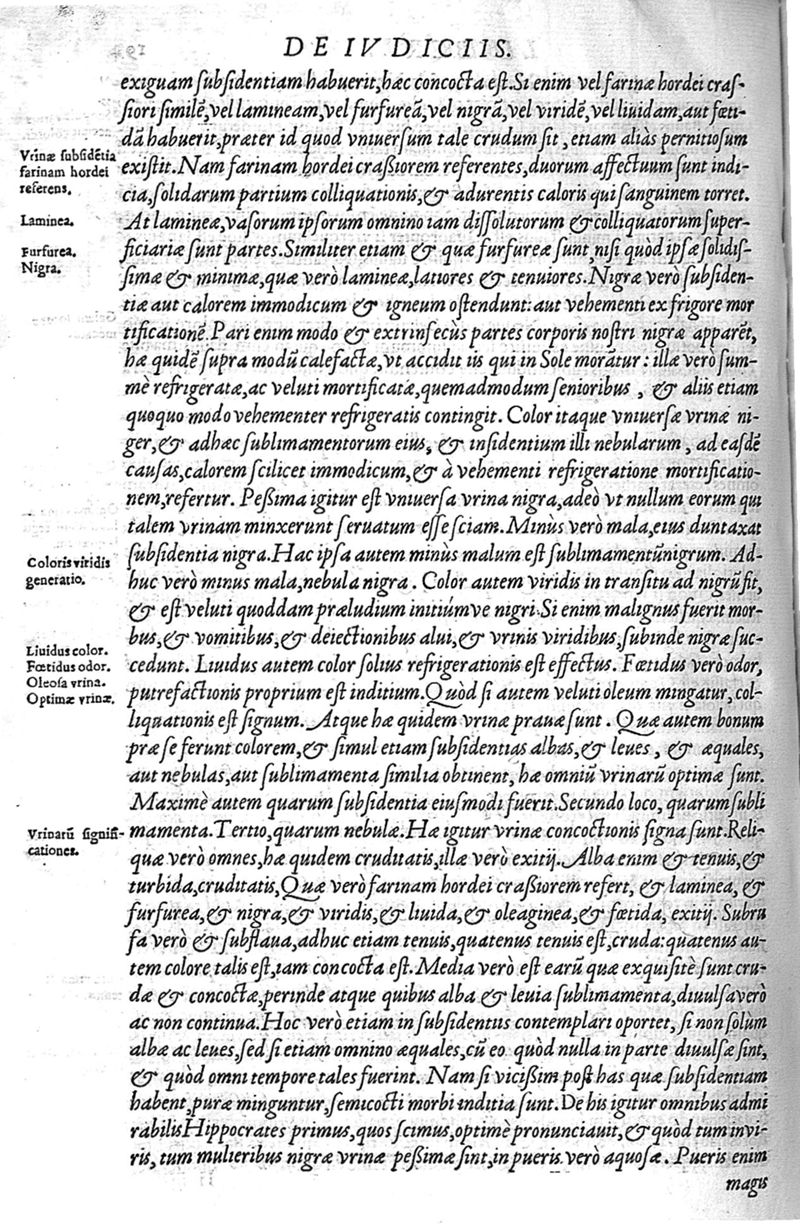 DE IVDICIIS.
exiguam subsidentiam habuerit, hæc concocta est. Si enim vel farinæ hordei cras-
siori similẽ, vel lamineam, vel furfureã, vel nigrã, vel viridẽ, vel liuidam, aut fœti-
dã habuerit, præter id quod vniuersum tale crudum sit, etiam aliàs pernitiosum
Vrinæ subsidẽtia
farinam hordei
referens.
existit. Nam farinam hordei craßiorem referentes, duorum affectuum sunt indi-
cia, solidarum partium colliquationis, & adurentis caloris qui sanguinem torret.
Laminea.
At lamineæ, vasorum ipsorum omnino iam dissolutorum & colliquatorum super-
Furfurea.
Nigra.
ficiariæ sunt partes. Similiter etiam & quæ furfureæ sunt, nisi quòd ipsæ solidis-
simæ & minimæ, quæ verò lamineæ, latiores & tenuiores. Nigræ verò subsiden-
tiæ aut calorem immodicum & igneum ostendunt: aut vehementi ex frigore mor
tificationẽ. Pari enim modo & extrinsecùs partes corporis nostri nigræ apparẽt,
hæ quidẽ supra modũ calefactæ, vt accidit iis qui in Sole morãtur: illæ verò sum-
mè refrigeratæ, ac veluti mortificatæ, quemadmodum senioribus, & aliis etiam
quoquo modo vehementer refrigeratis contingit. Color itaque vniuersæ vrinæ ni-
ger, & adhæc sublimamentorum eius, & insidentium illi nebularum, ad easdẽ
causas, calorem scilicet immodicum, & à vehementi refrigeratione mortificatio-
nem, refertur. Peßima igitur est vniuersa vrina nigra, adeò vt nullum eorum qui
talem vrinam minxerunt seruatum esse sciam. Minùs verò mala, eius duntaxat
Coloris viridis
generatio.
subsidentia nigra. Hac ipsa autem minùs malum est sublimamentũ nigrum. Ad-
huc verò minus mala, nebula nigra. Color autem viridis in transitu ad nigrũ fit,
& est veluti quoddam præludium initiúmve nigri. Si enim malignus fuerit mor-
bus, & vomitibus, & deiectionibus alui, & vrinis viridibus, subinde nigræ suc-
Liuidus color.
Fœtidus odor.
Oleosa vrina.
Optimæ vrinæ.
cedunt. Liuidus autem color solius refrigerationis est effectus. Fœtidus verò odor,
putrefactionis proprium est inditium. Quòd si autem veluti oleum mingatur, col-
liquationis est signum. Atque hæ quidem vrinæ prauæ sunt. Quæ autem bonum
præ se ferunt colorem, & simul etiam subsidentias albas, & leues, & æquales,
aut nebulas, aut sublimamenta similia obtinent, hæ omniũ vrinarũ optimæ sunt.
Maximè autem quarum subsidentia eiusmodi fuerit. Secundo loco, quarum subli
Vrinarũ signifi-
cationes.
mamenta. Tertio, quarum nebulæ. Hæ igitur vrinæ concoctionis signa sunt. Reli-
quæ verò omnes, hæ quidem cruditatis, illæ verò exitij. Alba enim & tenuis, &
turbida, cruditatis, Quæ verò farinam hordei craßiorem refert, & laminea, &
furfurea, & nigra, & viridis, & liuida, & oleaginea, & fœtida, exitij. Subru
fa verò & subflaua, adhuc etiam tenuis, quatenus tenuis est, cruda: quatenus au-
tem colore talis est, iam concocta est. Media verò est earũ quæ exquisitè sunt cru-
dæ & concoctæ, perinde atque quibus alba & leuia sublimamenta, diuulsa verò
ac non continua. Hoc verò etiam in subsidentiis contemplari oportet, si non solùm
albæ ac leues, sed si etiam omnino æquales, cũ eo quòd nulla in parte diuulsæ sint,
& quòd omni tempore tales fuerint. Nam si vicißim post has quæ subsidentiam
habent, puræ minguntur, semicocti morbi inditia sunt. De his igitur omnibus admi
rabilis Hippocrates primus, quos scimus, optimè pronunciauit, & quòd tum in vi-
ris, tum mulieribus nigræ vrinæ peßimæ sint, in pueris verò aquosæ. Pueris enim
magis